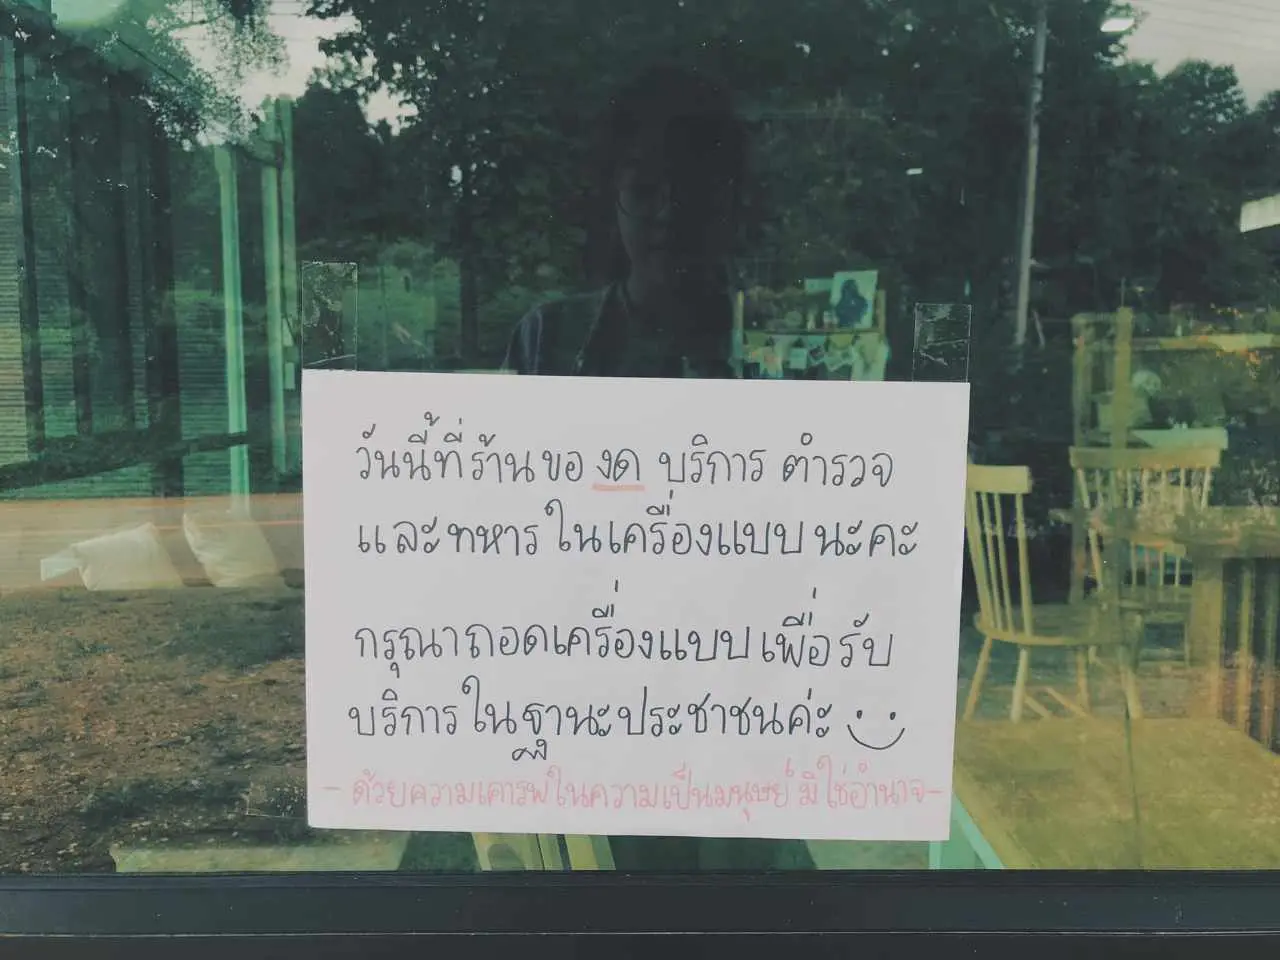 วันนี้ที่ร้านของด บริการ ตำรวจ
และทหาร ในเครื่องแบบ นะคะ
กรุณาถอดเครื่องแบบเพื่อรับ
บริการในฐานะประชาชนค่ะ
- ด้วยความเคารพในความเป็นมนุษย์ มิใช่อำนาจ -